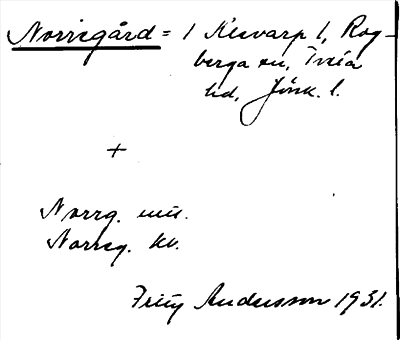 Norregård = 1 Kisvarp 1, Rog-
berga sn, Tveta
hd, Jönk. l.
+
Norrg. mu.
Norreg. kv.
Fritz Andersson 1931.